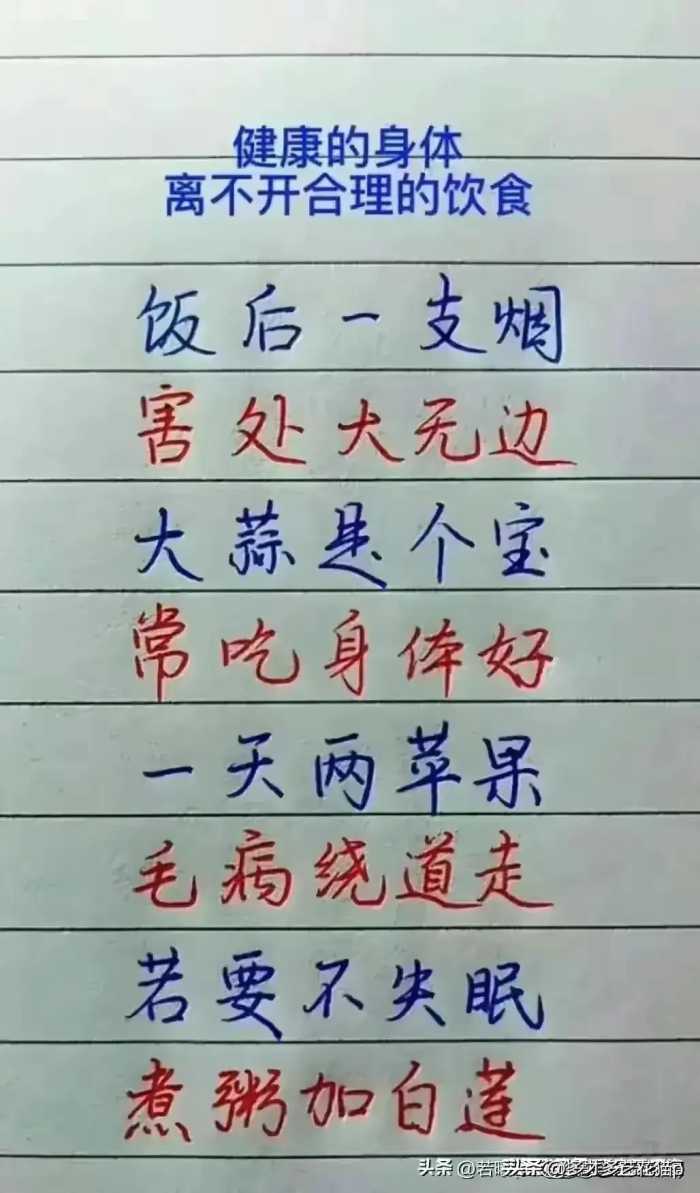 健康的身体
离不开合理的饮食
饭后一支烟
害处大无边
大蒜是个宝
常吃身体好
一天两苹果
毛病绕道走
若要不失眠
煮粥加白莲
头条